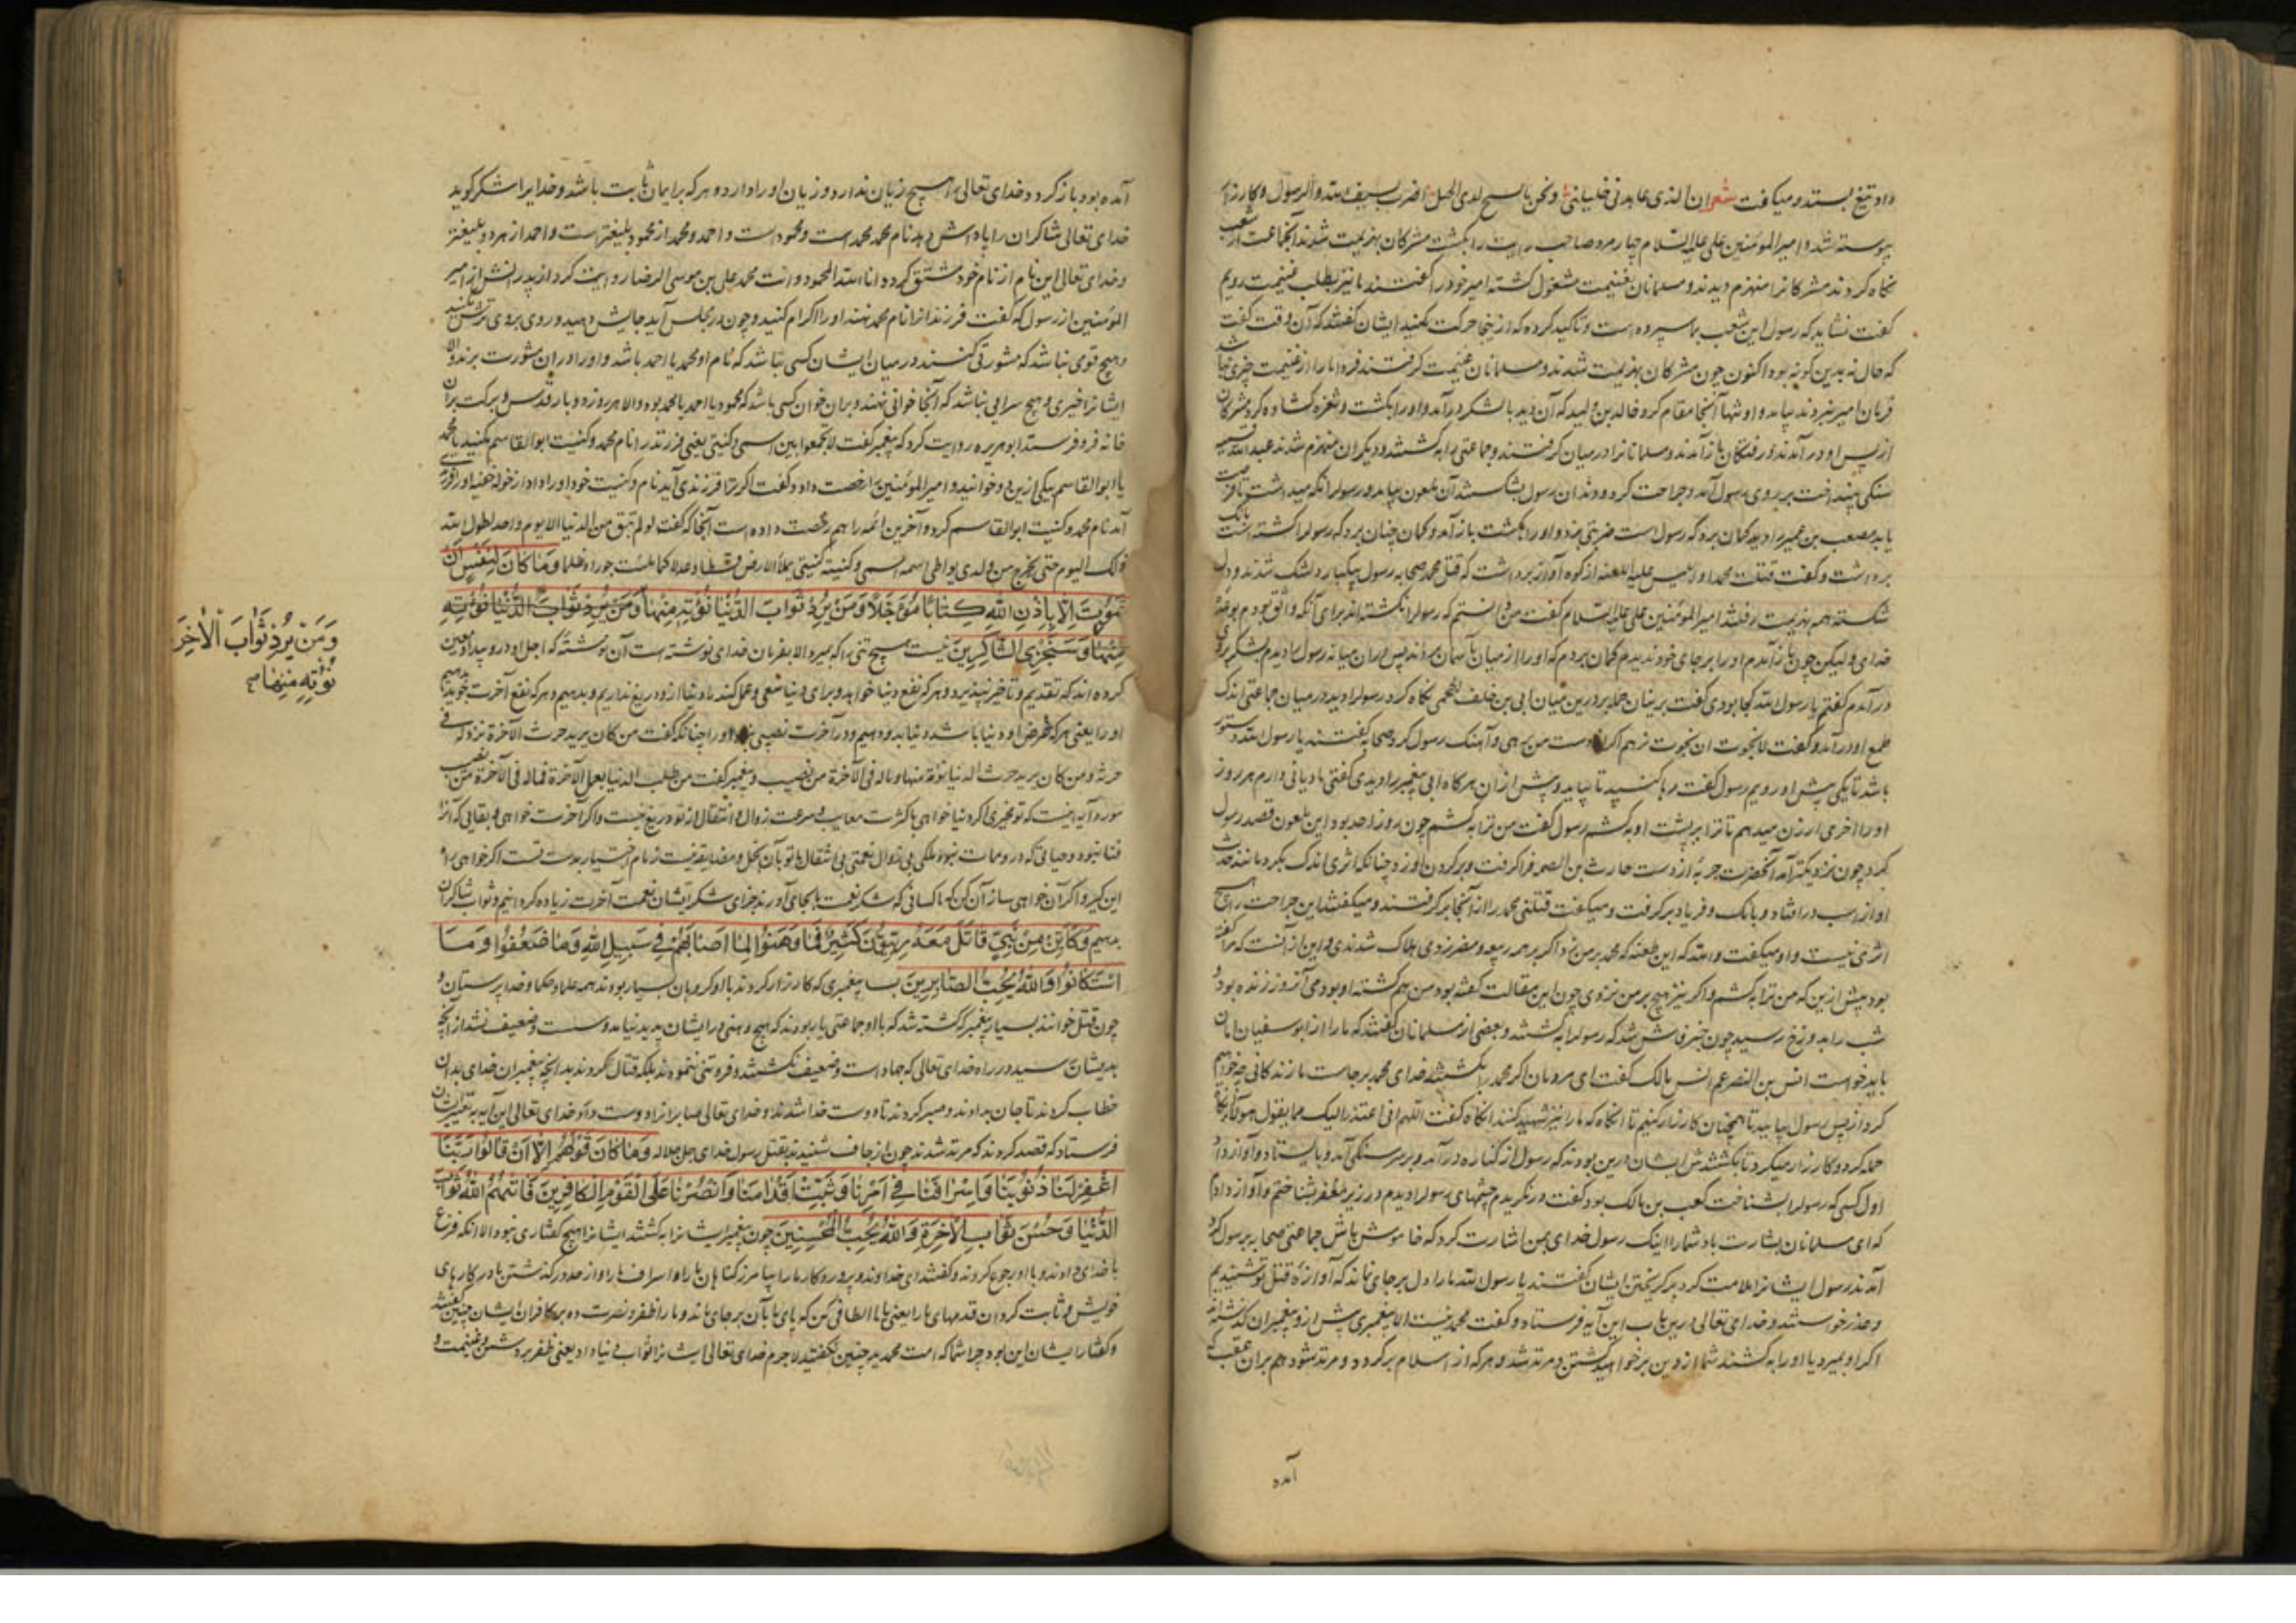 داد تیغ بستد و میگفت شعر ان الذی عاهدنی خلیلی ونحن بالسح لدی النخیل اضرب بسیف الله والرسول و کارزار
پیوسته شد و امیرالمؤمنین علی علیه السلام چهار مرد صاحب رایت را بکشت مشرکان بهزیمت شدند آنجماعت از شعب
نگاه کردند مشرکانرا منهزم دیدند و مسلمانان بغنیمت مشغول کشته امیر خود را گفتند ما نیز بطلب غنیمت رویم
گفت نشاید که رسول این شعب بما سپرده است و تاکید کرده که از ینجا حرکت مکنید ایشان گفتند که آن وقت گفت
که حال نه بدین گونه بود اکنون چون مشرکان بهزیمت شدند و مسلمانان غنیمت گرفتند فردا ما را از غنیمت چیزی نباشد
فرمان امیر نبردند بیامدند و او تنها آنجا مقام کرد خالد بن ولید که آن دید با لشکر درآمد و او را بکشت و ثغره گشاده کرد مشرکان
از پس او درآمدند و رفتگان باز آمدند و مسلمانانرا در میان گرفتند و جماعتی را بکشتند و دیگران منهزم شدند عبدالله قمیه
سنگی بینداخت بر روی رسول آمد و جراحت کرد و دندان رسول بشکستند آن ملعون بیامد و رسولرا نگه میداشت تا فرصت
یابد مصعب بن عمیر را دید گمان برد که رسول است ضربتی بزد و او را بکشت باز آمد و گمان چنان برد که رسولرا کشته است بانک
برداشت و گفت قتلت محمدا و ابلیس علیه اللعنه از کوه آواز برداشت که قتل محمد صحابه رسول بیکبار دلتنگ شدند و دل
شکسته همه بهزیمت رفتند امیر المؤمنین علی علیه السلام گفت من دانستم که رسولرا نکشته اند برای آنکه واثق بودم بوعده
خدای ولیکن چون باز آمدم او را بر جای خود ندیدم گمان بردم که او را از میان ما بآسمان بردند پس دران میانه رسول را دیدم
درآمدم گفتم یا رسول الله کجا بودی گفت برینان حمله بر درین میان ابی بن خلف الجمحی نگاه کرد رسولرا دید در میان جماعتی اندک
طمع او درآمد و گفت لا نجوت ان نجوت نرهم اکر دوست من برهی و آهنگ رسول کرد صحابه گفتند یا رسول الله دستور
باشد تا یکی پیش او رویم رسول گفت رها کنید تا بیاید و پیش ازان هر گاه ابی پیغمبر را دیدی گفتی مادیانی دارم هر روز
او را اخری ارزن میدهم تا ترا بر پشت او بکشم رسول گفت من ترا بکشم چون روز احد بود این ملعون قصد رسول
کرد چون نزدیکتر آمد آنحضرت حربه از دست حارث بن الصمه فرا گرفت و بر گردن او زد چنانکه اثری اندک بکرد مانند خدشه
او از اسب در افتاد و بانک و فریاد برگرفت و میگفت قتلنی محمد را از آنجا برگرفتند و میگفتند این جراحت را هیچ
اثری نیست و او میگفت والله که این طعنه که محمد بر من زد اکر بر همه ربیعه و مضر زدی هلاک شدندی و این از آنست که مرا گفته
بود پیش ازین که من ترا بکشم و اکر نیز هیچ بر من نزدی چون این مقالت گفته بود من هم کشته او بودمی آنروز زنده بود و
شب را بدوزخ رسید چون خبر فاش شد که رسولرا بکشتند بعضی از مسلمانان گفتند که ما را از ابوسفیان امان
باید خواست انس بن النضر عم انس مالک گفت ای مردمان اکر محمد را بکشتند خدای محمد برجاست ما زندگانی چه خواهیم
کرد از پس رسول بیایید تا همچنان کارزار کنیم تا انکاه که ما را نیز شهید کنند انکاه گفت اللهم انی اعتذر الیک مما یقول هولاء
حمله کرد و کارزار میکرد تا بکشتندش ایشان درین بودند که رسول از کناره درآمد و بر سر سنگی آمد و بایستاد و آواز داد
اول کسی که رسولرا بشناخت کعب بن مالک بود گفت در نگریدم چشمهای رسولرا دیدم در زیر مغفر بشناختم و آواز دادم
که ای مسلمانان بشارت باد شمارا اینک رسول خدای بمن اشارت کرد که خاموش باش جماعتی صحابه بر رسول
آمدند رسول ایشانرا ملامت کرد بر گریختن ایشان گفتند یا رسول الله ما را دل بر جای نماند که آوازه قتل تو شنیدیم
و عذر خواستند و خدای تعالی درین باب این آیه فرستاد و گفت محمد نیست الا پیغمبری پیش از و پیغمبران گذشته اند
اکر او بمیرد یا او را بکشند شما از دین بر خواهید گشتن و مرتد شد و هر که از اسلام برگردد و مرتد شود هم بران عقب که
آمده
آمده بود باز گردد خدای تعالی را هیچ زیان ندارد و زیان او را دارد و هر که بر ایمان ثابت باشد و خدایرا شکر گوید
خدای تعالی شاکران را پاداش دهد نام محمد محمد است و محمود است و احمد و محمد از محمود بلیغتر است و احمد از هر دو بلیغتر
و خدای تعالی این نام از نام خود مشتق کرده انا الله المحمود و انت محمد علی بن موسی الرضا روایت کرد از پدرانش از امیر
المؤمنین از رسول که گفت فرزند از نام محمد نهند او را اکرام کنید و چون در مجلس آید جایش دهید و روی بروی ترش مکنید
و هیچ قوم نباشد که مشورتی کنند در میان ایشان کسی نباشد که نام او محمد یا احمد باشد و او را دران مشورت برند و الا
ایشانرا خیری و هیچ سرایی نباشد که آنجا خوانی نهند و بران خوان کسی باشد که محمود یا احمد یا محمد بود والا هر روز دو بار قدس و برکت بران
خانه فرو فرستد ابو هریره روایت کرد که پیغمبر گفت لا تجمعوا بین اسمی و کنیتی یعنی فرزند را نام محمد و کنیت ابوالقاسم مکنید یا محمد
یا ابوالقاسم یکی ازین دو خوانید و امیر المؤمنین را رخصت داد و گفت اکر ترا فرزندی آید نام و کنیت خود او را دادم
آمد نام محمد و کنیت ابوالقاسم کرد و آخرین ائمه را هم رخصت داده است آنجا که گفت لو لم یبق من الدنیا الا یوم واحد لطول الله
ذلک الیوم حتی یخرج من ولدی یواطی اسمه اسمی و کنیته کنیتی یملأ الارض قسطا و عدلا کما ملئت جورا و ظلما وَمَا كَانَ لِنَفْسٍ اَنْ
تَمُوتَ اِلَّا بِاِذْنِ اللهِ كِتَابًا مُؤَجَّلًا وَمَنْ يُرِدْ ثَوَابَ الدُّنْيَا نُؤْتِهِ مِنْهَا وَمَنْ يُرِدْ ثَوَابَ الدُّنْيَا نُؤْتِهِ
مِنْهَا وَسَنَجْزِي الشَّاكِرِينَ نیست هیچ تنی را که بمیرد الا بفرمان خدای نوشته است آن نوشته که اجل او درو پیدا و معین
کرده اند که تقدیم و تاخیر نپذیرد و هر که نفع دنیا خواهد و برای دنیا سعی و عمل کند ما دنیا ازو دریغ نداریم و بدهیم و هر که نفع آخرت خواهد بدهیم
او را یعنی هر که غرض او دنیا باشد دنیا بدو دهیم و در آخرت نصیبی نبود او را چنانکه گفت من کان یرید حرث الآخرة نزد له فی
حرثه ومن کان یرید حرث الدنیا نؤته منها وما له فی الآخرة من نصیب و پیغمبر گفت من طلب الدنیا بعمل الآخرة فما له فی الآخرة من نصیب
مورد آیه اینست که تو مخیری اکر دنیا خواهی با کثرت معایب و سرعت زوال و انتقال از تو دریغ نیست و اکر آخرت خواهی و بقایی که آنرا
فنا نبود و حیاتی که درو ممات نبود و ملکی بی زوال نعمتی بی انتقال با تو بآن بخل و مضایقه نیست زمام اختیار بدست تست اکر خواهی راه
این گیر و اکر آن خواهی ساز آن کن که ما کسانی که شکر نعمت ما بجای آورند جزای شکر ایشان نعمت آخرت زیاده کردانیم و ثواب شاکران
بدهیم وَكَاَيِّنْ مِنْ نَبِيٍّ قَاتَلَ مَعَهُ رِبِّيُّونَ كَثِيرٌ فَمَا وَهَنُوا لِمَا اَصَابَهُمْ فِي سَبِيلِ اللهِ وَمَا ضَعُفُوا وَمَا
اسْتَكَانُوا وَاللهُ يُحِبُّ الصَّابِرِينَ بسا پیغمبری که کارزار کردند با او گروهان بسیار بودند همه علما و حکما و خدا پرستان و
چون قتل خوانند بسیار پیغمبر که کشته شد که با او جماعتی یار بودند که هیچ وهنی در ایشان پدید نیامد و سست و ضعیف نشد از آنچه
بدیشان رسید در راه خدای تعالی که جهاد است و ضعیف نگشتند و فروتنی ننمودند بلکه قتال کردند بدانچه پیغمبران خدای بدان
خطاب کردند تا جان بدادند و صبر کردند تا دوست خدا شدند و خدای تعالی صابرانرا دوست دارد خدای تعالی این آیه
فرستاد که قصد کردند که مرتد شدند چون ارجاف شنیدند بقتل رسول خدای جل جلاله وَمَا كَانَ قَوْلَهُمْ اِلَّا اَنْ قَالُوا رَبَّنَا
اغْفِرْ لَنَا ذُنُوبَنَا وَاِسْرَافَنَا فِي اَمْرِنَا وَثَبِّتْ اَقْدَامَنَا وَانْصُرْنَا عَلَى الْقَوْمِ الْكَافِرِينَ فَآتٰهُمُ اللهُ ثَوَابَ
الدُّنْيَا وَحُسْنَ ثَوَابِ الْآخِرَةِ وَاللهُ يُحِبُّ الْمُحْسِنِينَ چون پیغمبر ایشانرا بکشتند ایشانرا هیچ گفتاری نبود الا انکه فزع
با خدای دادند و با او رجوع کردند و گفتند ای خداوند و پروردکار ما را بیامرز گناهان ما را و اسراف ما را و از حد درگذشتن ما در کارهای
خویش و ثابت گردان قدمهای ما را یعنی با ما الطافی کن که پای ما بآن بر جای ماند و ما را ظفر و نصرت ده بر کافران ایشان چنین گفتند
و گفتار ایشان این بود چرا شما که امت محمدید چنین نگفتید لاجرم خدای تعالی ایشانرا ثواب دنیا داد یعنی ظفر بر دشمن و غنیمت و
وَمَنْ يُرِدْ ثَوَابَ الْاٰخِرَةِ
نُؤْتِهِ مِنْهَا صح